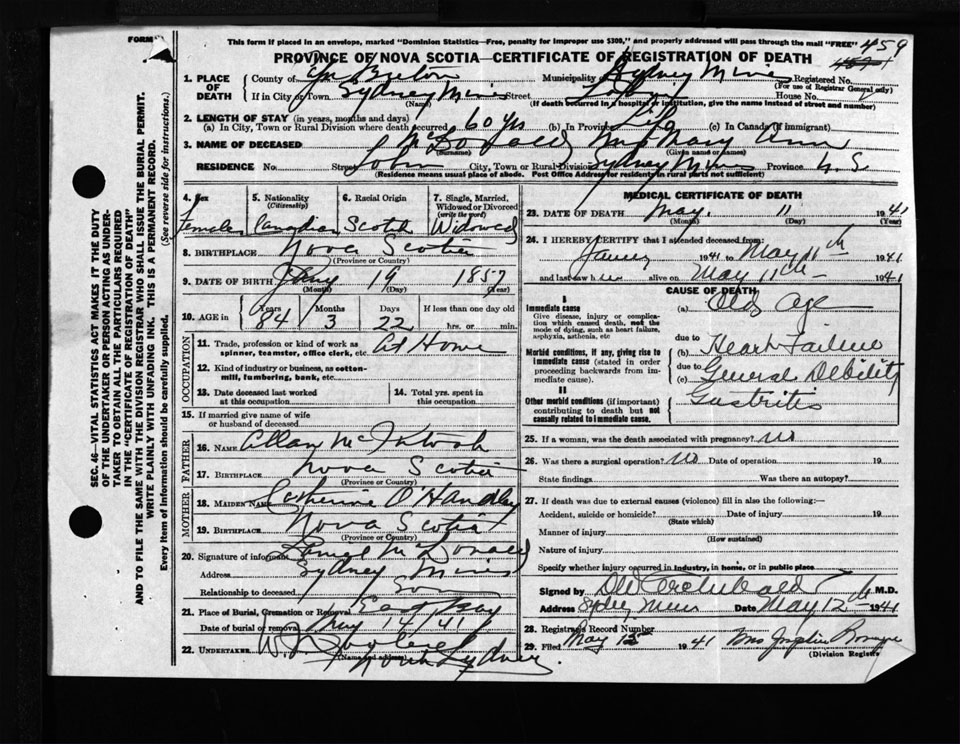 FORM
This form if placed in an envelope, marked "Dominion Statistics—Free, penalty for improper use $300," and properly addressed will pass through the mail "FREE"
459
PROVINCE OF NOVA SCOTIA—CERTIFICATE OF REGISTRATION OF DEATH
1. PLACE OF DEATH County of Cape Breton Municipality Sydney Mines Registered No.
(For use of Registrar General only)
If in City or Town Sydney Mines Street House No.
(Name) (If death occurred in a hospital or institution, give the name instead of street and number)
2. LENGTH OF STAY (in years, months and days)
(a) In City, Town or Rural Division where death occurred 60 yrs (b) In Province Life (c) In Canada (if immigrant)
3. NAME OF DECEASED McDonald Mrs Mary Ann
(Surname) (Given name or names)
RESIDENCE No. Street City, Town or Rural Division Sydney Mines Province N.S.
(Residence means usual place of abode. Post Office Address for residents in rural parts not sufficient)
4. Sex Female
5. Nationality (Citizenship) Canadian
6. Racial Origin Scotch
7. Single, Married, Widowed or Divorced (write the word) Widowed
8. BIRTHPLACE Nova Scotia
(Province or Country)
9. DATE OF BIRTH Jany 19 1857
(Month) (Day) (Year)
10. AGE in Years Months Days If less than one day old
84 3 22 hrs. or min.
OCCUPATION
11. Trade, profession or kind of work as spinner, teamster, office clerk, etc. At Home
12. Kind of industry or business, as cotton-mill, lumbering, bank, etc.
13. Date deceased last worked at this occupation
14. Total yrs. spent in this occupation
15. If married give name of wife or husband of deceased
FATHER
16. NAME Allan McIntosh
17. BIRTHPLACE Nova Scotia
(Province or Country)
MOTHER
18. MAIDEN NAME Catherine O'Handley
19. BIRTHPLACE Nova Scotia
(Province or Country)
20. Signature of informant McDonald
Address Sydney Mines
Relationship to deceased Son
21. Place of Burial, Cremation or Removal East Bay
Date of burial or removal May 14/41
22. UNDERTAKER
(Name and
North Sydney.
MEDICAL CERTIFICATE OF DEATH
23. DATE OF DEATH May 11 1941
(Month) (Day) (Year)
24. I HEREBY CERTIFY that I attended deceased from:
1941 to May 11th 1941
and last saw her alive on May 11th 1941
CAUSE OF DEATH
I
Immediate cause
Give disease, injury, or complication which caused death, not the mode of dying, such as heart failure, asphyxia, asthenia, etc
(a) Old Age
due to
Morbid conditions, if any, giving rise to immediate cause (stated in order proceeding backwards from immediate cause).
(b) Heart Failure
due to
(c) General Debility
II
Other morbid conditions (if important) contributing to death but not causally related to immediate cause.
Gastritis
25. If a woman, was the death associated with pregnancy? No
26. Was there a surgical operation? No Date of operation 19
State findings Was there an autopsy?
27. If death was due to external causes (violence) fill in also the following:—
Accident, suicide or homicide? Date of injury 19
(State which)
Manner of injury
(How sustained)
Nature of injury
Specify whether injury occurred in industry, in home, or in public place
Signed by Archibald M.D.
Address Sydney Mines Date May 12th 1941
28. Registrar's Record Number
29. Filed May 1941
(Division Registrar)
SEC. 46—VITAL STATISTICS ACT MAKES IT THE DUTY
OF THE UNDERTAKER OR PERSON ACTING AS UNDER-
TAKER TO OBTAIN ALL THE PARTICULARS REQUIRED
IN THE "CERTIFICATE OF REGISTRATION OF DEATH"
AND TO FILE THE SAME WITH THE DIVISION REGISTRAR WHO SHALL ISSUE THE BURIAL PERMIT.
WRITE PLAINLY WITH UNFADING INK. THIS IS A PERMANENT RECORD.
Every item of information should be carefully supplied. (See reverse side for instructions.)